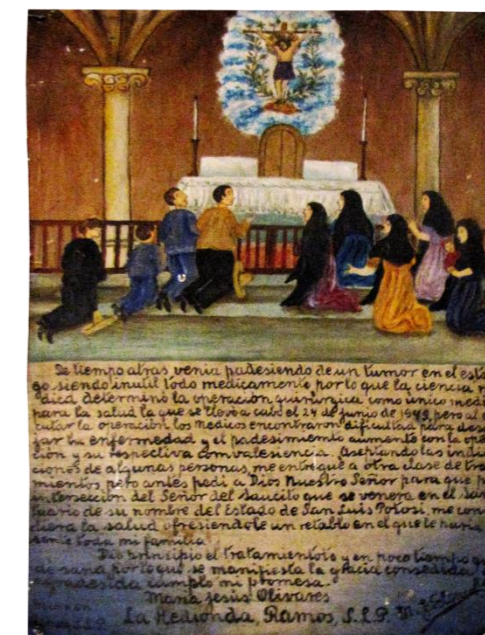 De tiempo atras venia padesiendo de un tumor en el esto
go siendo inutil todo medicamento por lo que la ciencia m
dica determinó la operación quirurgica como unico medi
para la salud la que se llevó a cabo el 24 de junio de 1949, pero al e
cutar la operación los medicos encontraron dificultad para des
jar la enfermedad y el padesimiento aumentó con la ope
ción y su respectiva comvalesiencia. Aseptando las indi
ciones de algunas personas, me entregue a otra clase de tra
mientos, peto antes pedi a Dios Nuestro Señor para que p
interseccion del Señor del Saucito que se venera en el San
tuario de su nombre del Estado de San Luis Potosi, me con
diera la salud ofresiendole un retablo en el que le haria
sente toda mi familia.
Dio principio el tratamiento y en poco tiempo q
de sana por lo qul se manifiesta la gracia consedida y
agradesida cumplo mi promesa.
Maria Jesus Olivares
La Hedionda, Ramos, S.L.P.